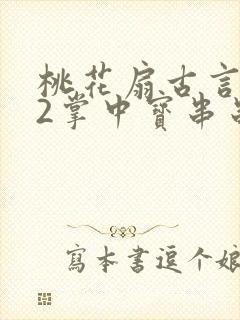 桃花扇古言
2掌中寳串
寫本書逗个娘